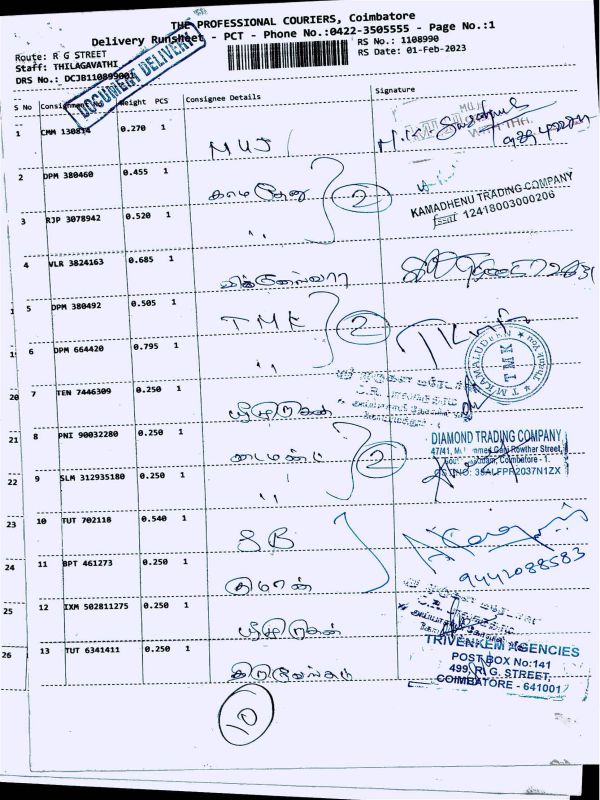 THE PROFESSIONAL COURIERS, Coimbatore
Delivery Runsheet - PCT - Phone No.:0422-3505555 - Page No.:1
Route: R G STREET
RS No.: 1108990
Staff: THILAGAVATHI
RS Date: 01-Feb-2023
DRS No.: DCJB110899001
DOCUMENT DELIVERY
S No Consignment Weight PCS Consignee Details Signature
1 CMM 130814 0.270 1
MUJ
2 DPM 380460 0.455 1
காமதேனு 2
KAMADHENU TRADING COMPANY
fssai 12418003000206
3 RJP 3078942 0.520 1
"
4 VLR 3824163 0.685 1
5 DPM 380492 0.505 1
TMK 2
6 DPM 664420 0.795 1
"
T.M KAMALUDEEN
TMK
20 7 TEN 7446309 0.250 1
ஸ்ரீ முருகன்
21 8 PNI 90032280 0.250 1
டைமண்ட் 2
DIAMOND TRADING COMPANY
47/41, Gani Rowther Street,
Coimbatore - 1.
22 9 SLM 312935180 0.250 1
"
23 10 TUT 702118 0.540 1
SB
24 11 BPT 461273 0.250 1
9442088583
25 12 IXM 502811275 0.250 1
26 13 TUT 6341411 0.250 1
TRIVENKEM AGENCIES
POST BOX No:141
499, R.G. STREET,
COIMBATORE - 641001
10